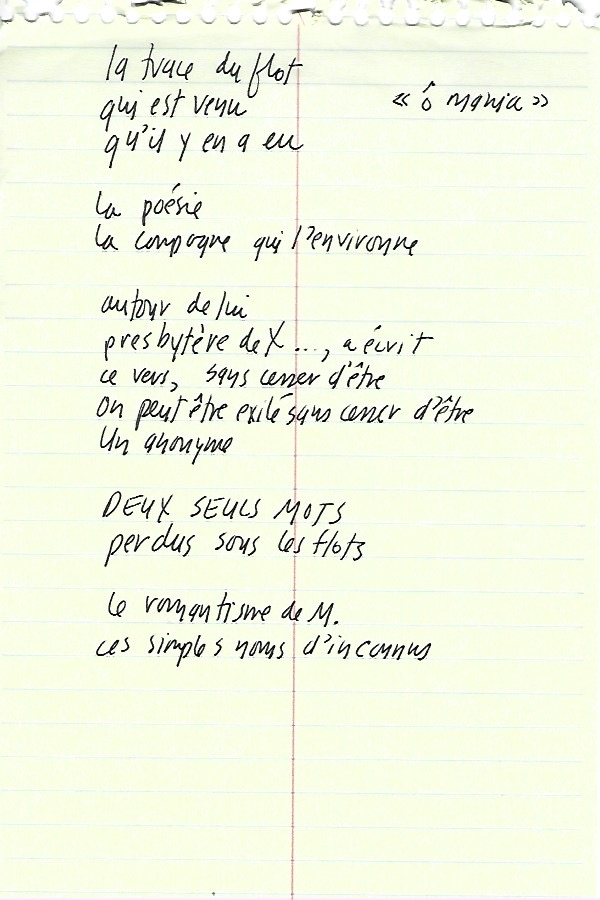 la trace du flot
qui est venu
« ô mania »
qu'il y en a eu
la poésie
la compagne qui l'environne
autour de lui
presbytère de X ..., a écrit
ce vers, sans cesser d'être
On peut être exilé sans cesser d'être
Un anonyme
DEUX SEULS MOTS
perdus sous les flots
le romantisme de M.
ces simples noms d'inconnus